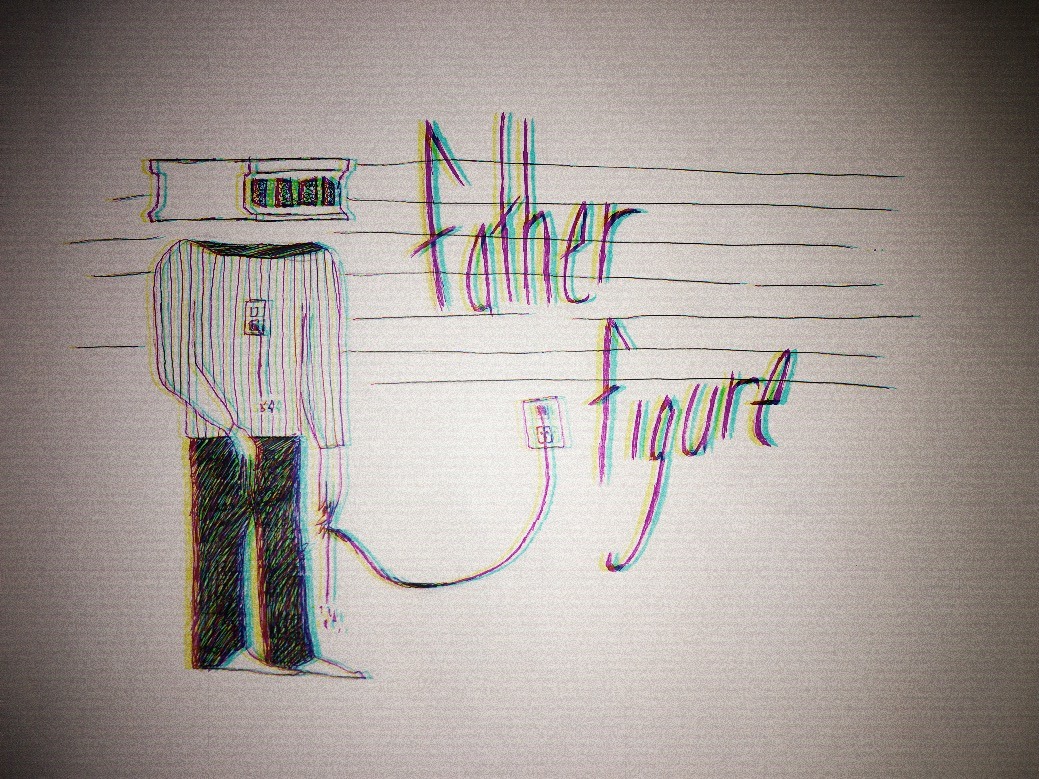 father
figure